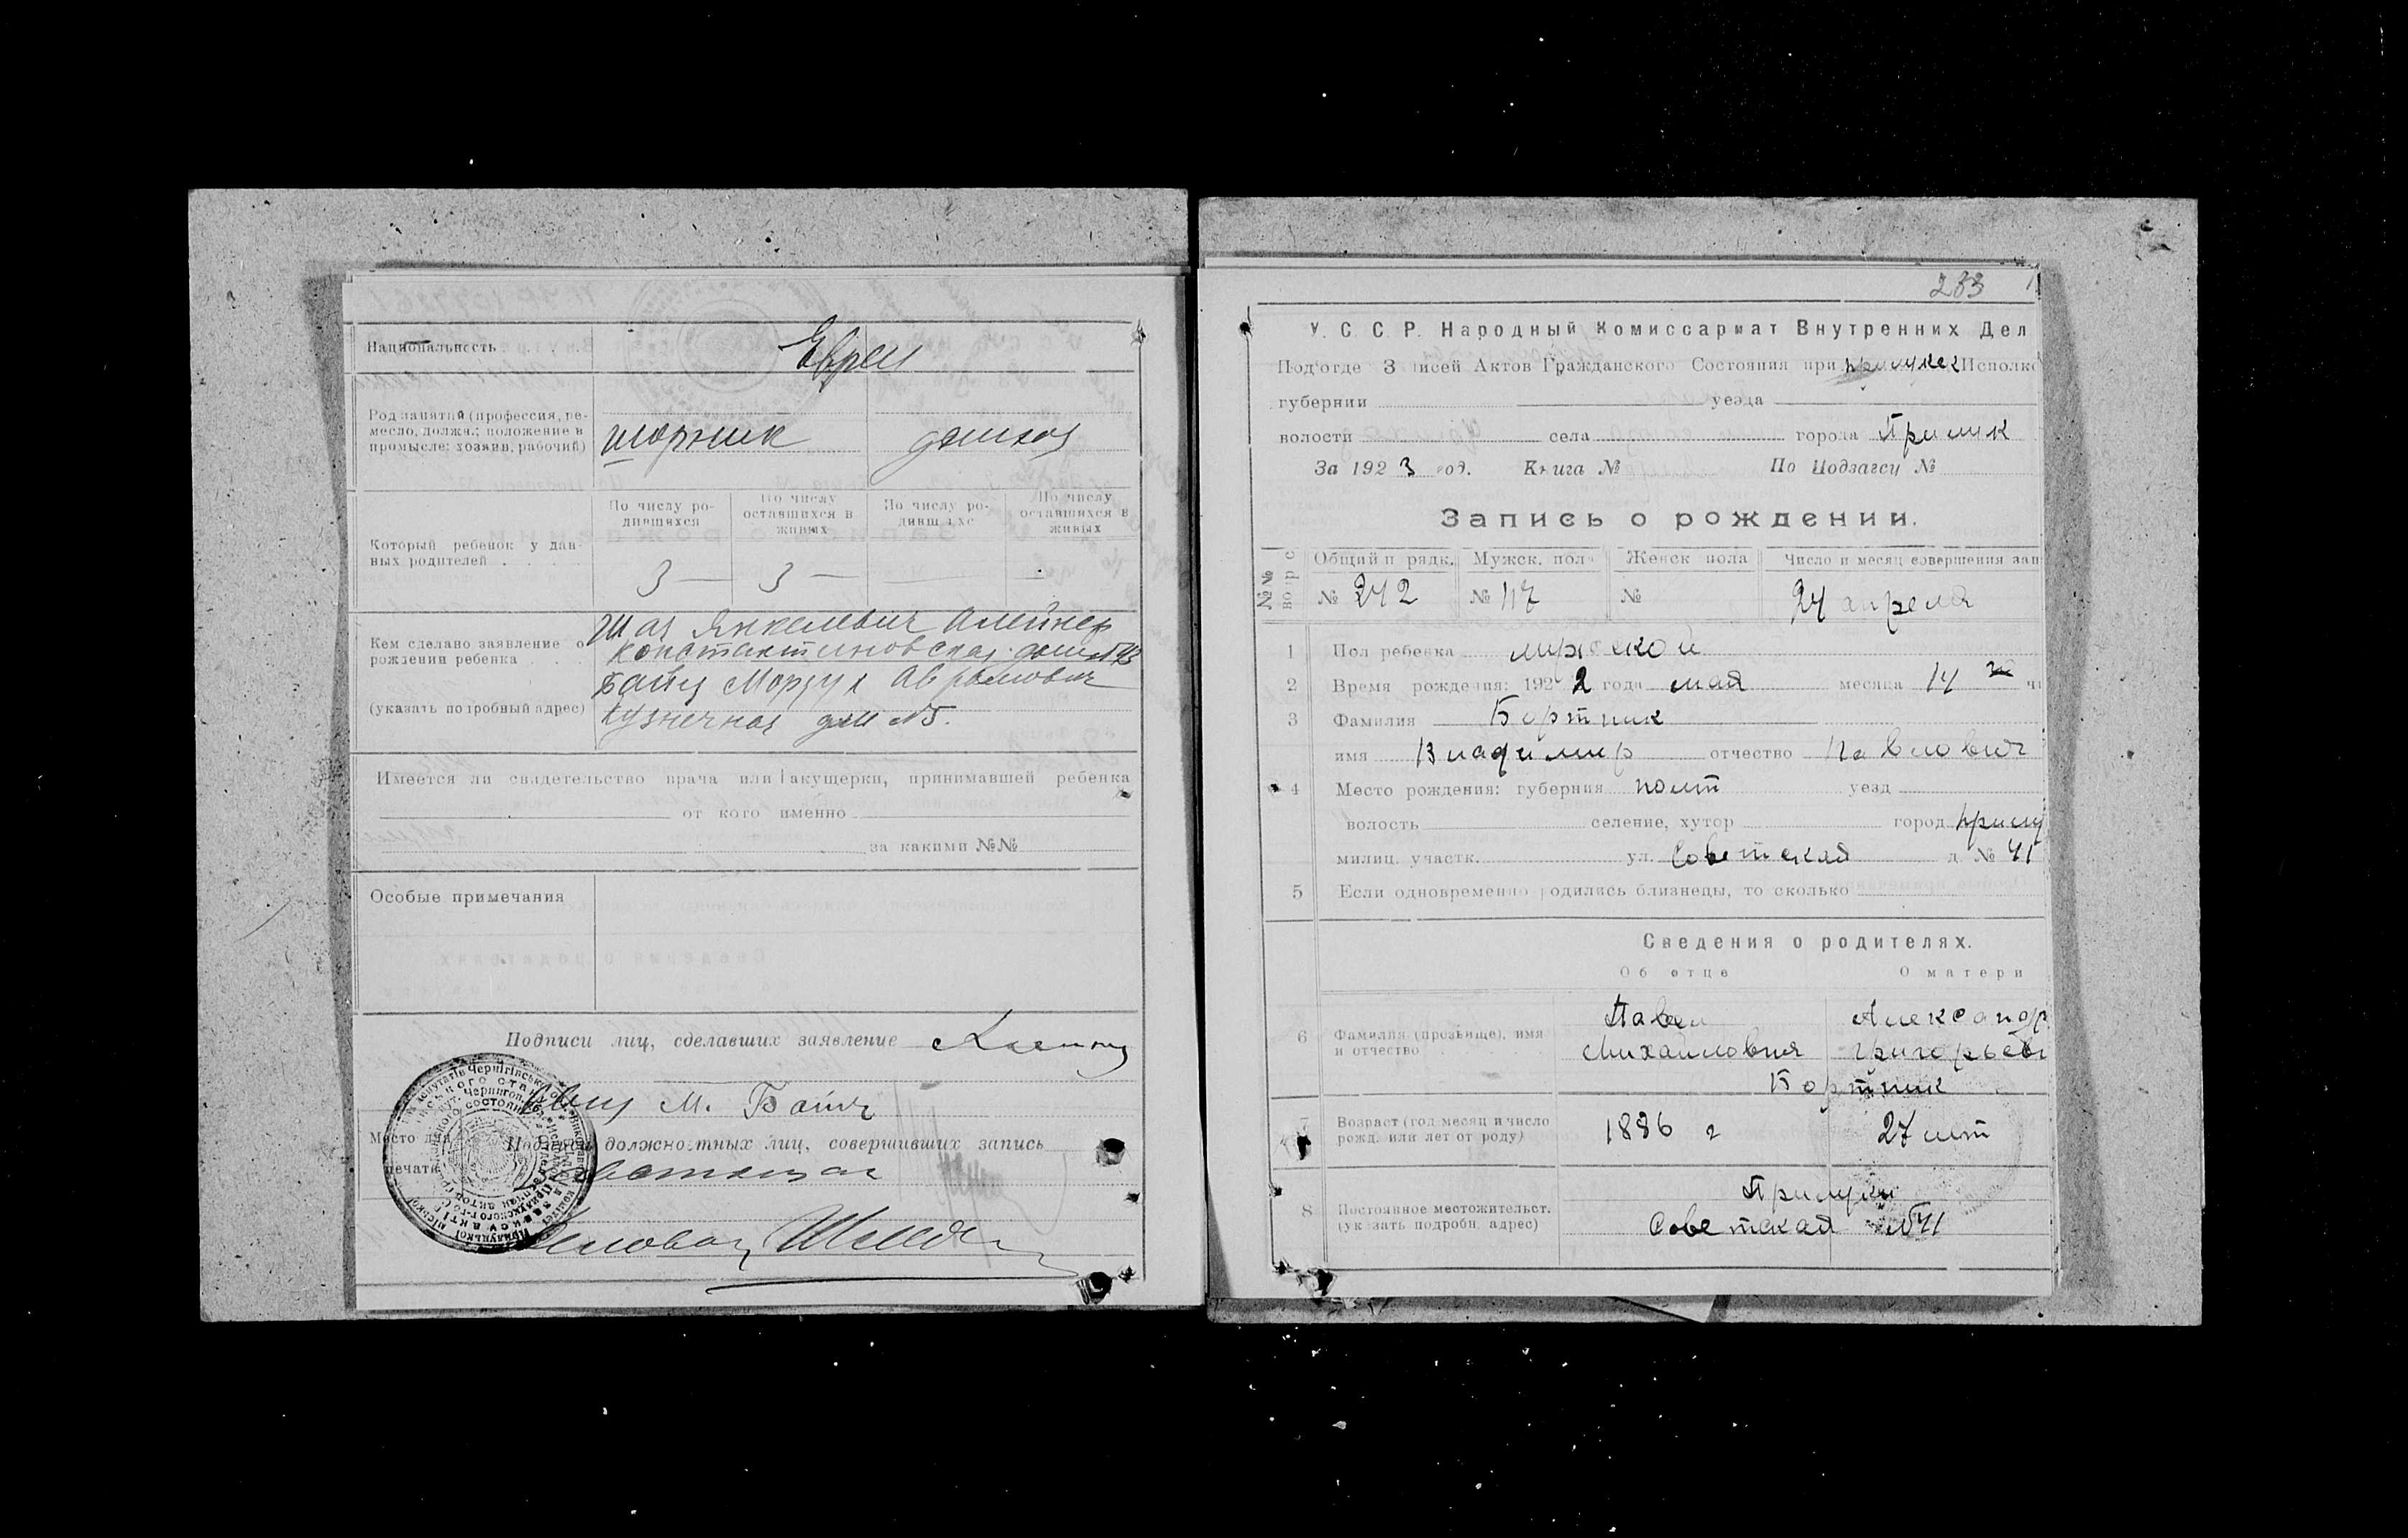 Национальность . . . . Евреи
Род занятий (профессия, ре-
месло, должн.; положение в
промысле: хозяин, рабочий)
шорник домхоз
По числу ро-
дившихся
По числу
оставшихся в
живых
По числу ро-
дивш хс
По числу
оставшихся в
живых
Который ребенок у дан-
ных родителей . . . .
3 — 3 —
Кем сделано заявление о
рождении ребенка . . .
(указать подробный адрес)
Шая Янкелевич Алейнер
Константиновская дом № 43
Байч Мордух Аврамович
Кузнечная дом № 5.
Имеется ли свидетельство врача или акушерки, принимавшей ребенка
от кого именно
за какими №№
Особые примечания
Подписи лиц, сделавших заявление
М. Байч
Место для
печати
Подписи должностных лиц, совершивших запись
233
У. С. С. Р. Народный Комиссариат Внутренних Дел
Под'отде З писей Актов Гражданского Состояния при прилукск Исполко
губернии уезда
волости села города Прилук
За 1923 год. Книга № По Подзагсу №
Запись о рождении.
№№
вопрос
Общий п рядк. Мужск. пол Женск пола Число и месяц совершения зап
№ 242 № 117 № 24 апреля
1 Пол ребенка мужской
2 Время рождения: 1922 года мая месяца 14 го чи
3 Фамилия Бортник
имя Владимир отчество Павлович
4 Место рождения: губерния полт уезд
волость селение, хутор город прилу
милиц. участк. ул. Советская д. № 41
5 Если одновременно родились близнецы, то сколько
Сведения о родителях.
Об отце О матери
6 Фамилия (прозвище), имя
и отчество . . . .
Павел Александр
Михайлович Григорьев
Бортник
7 Возраст (год месяц и число
рожд. или лет от роду)
1886 г 27 лет
8 Постоянное местожительст.
(ук зать подробн. адрес)
Прилуки
Советская № 41